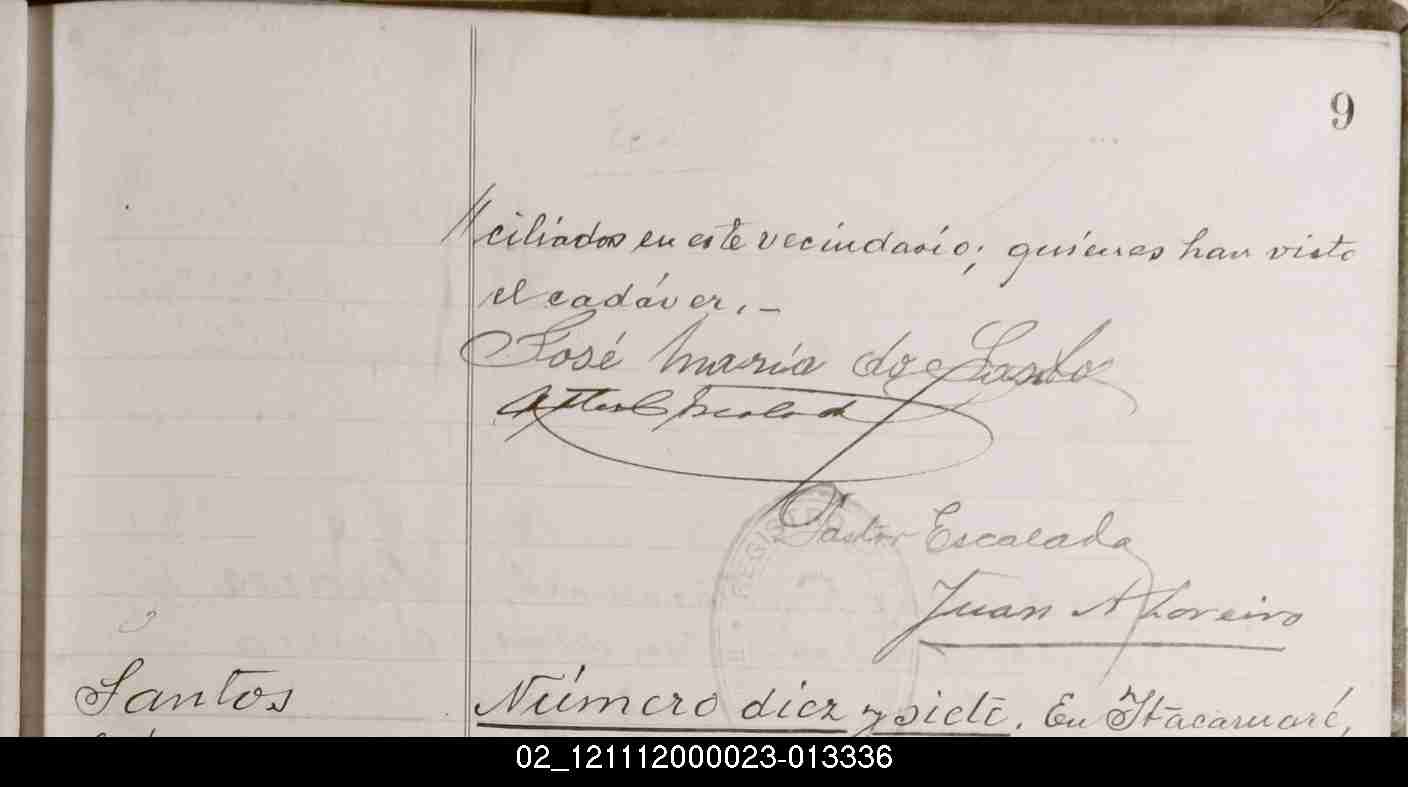 9
// ciliados en este vecindario; quienes han visto
el cadáver. –
José María do Santo
Escalada
Pastor Escalada
REGISTRO
Juan A Loreiro
Santos
Número diez y siete. En Itacaruaré,
02_121112000023-013336